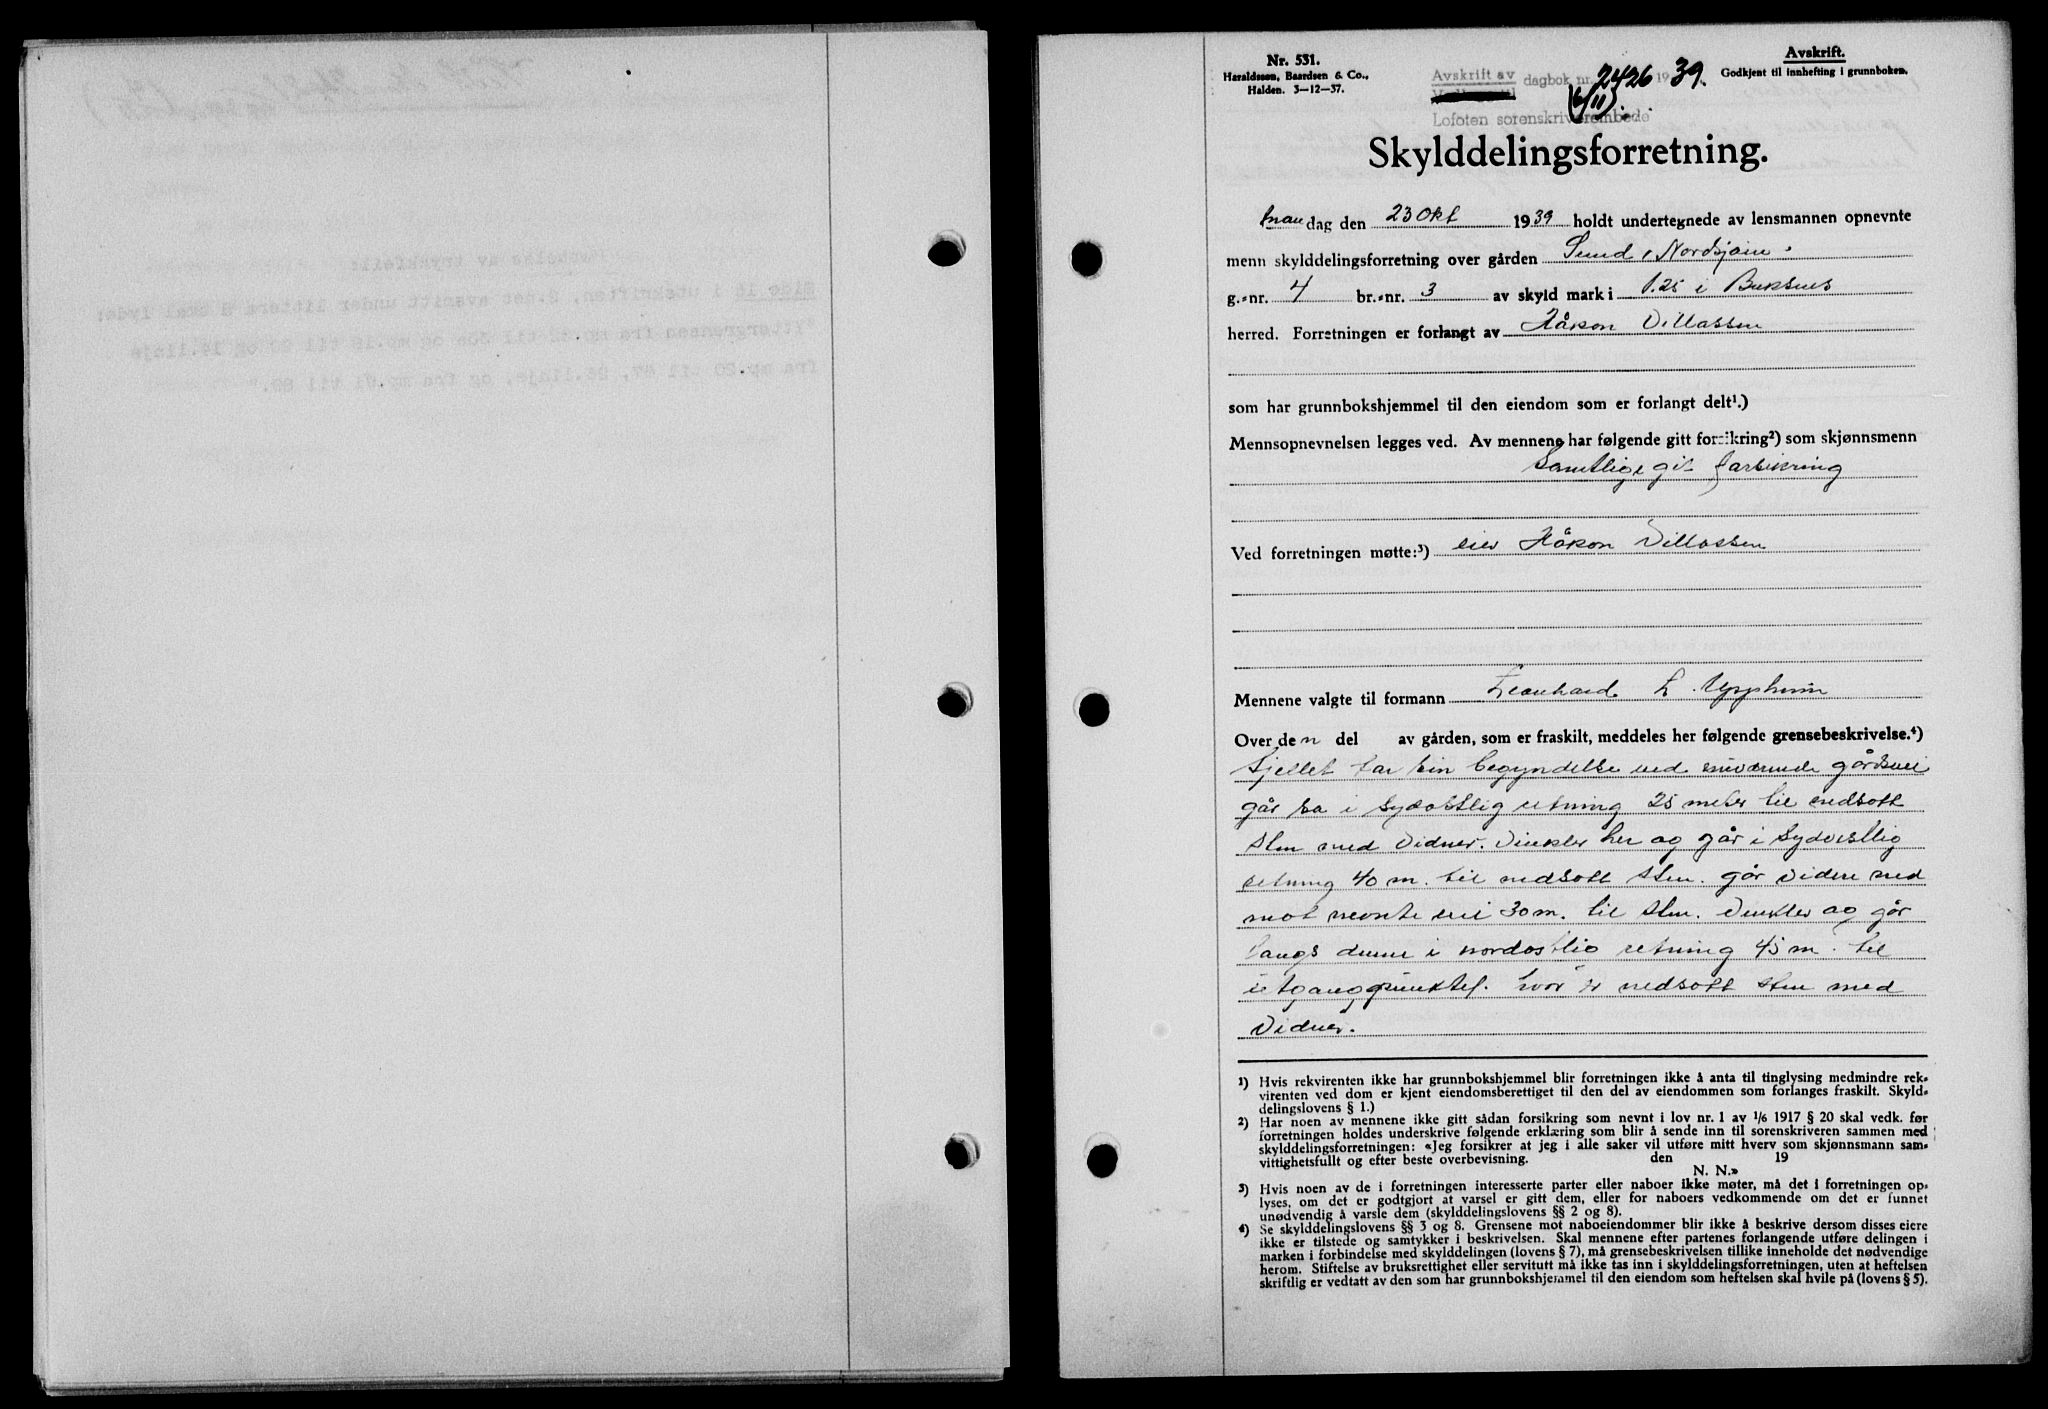 Nr. 531.
Haraldssen, Baardsen & Co.,
Halden. 3-12-37.
Avskrift av dagbok nr. 2426 1939.
(6/11).
Lofoten sorenskriverembede
Avskrift.
Godkjent til innhefting i grunnboken.
Skylddelingsforretning.
mandag den 23 Okt 1939 holdt undertegnede av lensmannen opnevnte
menn skylddelingsforretning over gården Sund, Nordsjøen.
g.-nr. 4 br.-nr. 3 av skyld mark i 1.25 i Buksnes
herred. Forretningen er forlangt av Håkon Villassen
som har grunnbokshjemmel til den eiendom som er forlangt delt¹.)
Mennsopnevnelsen legges ved. Av mennene har følgende gitt forsikring²) som skjønnsmenn
Samtlige git forsikring
Ved forretningen møtte:³) eier Håkon Villassen
Mennene valgte til formann Leonhard L Uppheim
Over den del av gården, som er fraskilt, meddeles her følgende grensebeskrivelse.⁴)
Sjellet tar sin begyndelse ved nuværende gårdsvei
går sa i sydostlig retning 25 meter til nedsatt
sten med Vidner. Vinkler her og går i sydvestlig
retning 40 m. til nedsatt sten. går videre ned
mot nevnte vei 30 m. til sten. Vinkler og går
langs denne i nordostlig retning 45 m. til
utgangspunktet. hvor er nedsatt sten med
Vidner.
1) Hvis rekvirenten ikke har grunnbokshjemmel blir forretningen ikke å anta til tinglysing medmindre rek-
virenten ved dom er kjent eiendomsberettiget til den del av eiendommen som forlanges fraskilt. Skyld-
delingslovens § 1.)
2) Har noen av mennene ikke gitt sådan forsikring som nevnt i lov nr. 1 av 1/6 1917 § 20 skal vedk. før
forretningen holdes underskrive følgende erklæring som blir å sende inn til sorenskriveren sammen med
skylddelingsforretningen: «Jeg forsikrer at jeg i alle saker vil utføre mitt hverv som skjønnsmann sam-
vittighetsfullt og efter beste overbevisning. den 19
N. N.»
3) Hvis noen av de i forretningen interesserte parter eller naboer ikke møter, må det i forretningen op-
lyses, om det er godtgjort at varsel er gitt dem, eller for naboers vedkommende om det er funnet
unødvendig å varsle dem (skylddelingslovens §§ 2 og 8).
4) Se skylddelingslovens §§ 3 og 8. Grensene mot naboeiendommer blir ikke å beskrive dersom disses eiere
ikke er tilstede og samtykker i beskrivelsen. Skal mennene efter partenes forlangende utføre delingen i
marken i forbindelse med skylddelingen (lovens § 7), må grensebeskrivelsen tillike inneholde det nødvendige
herom. Stiftelse av bruksrettighet eller servitutt må ikke tas inn i skylddelingsforretningen, uten at heftelsen
skriftlig er vedtatt av den som har grunnbokshjemmel til den eiendom som heftelsen skal hvile på (lovens § 5).